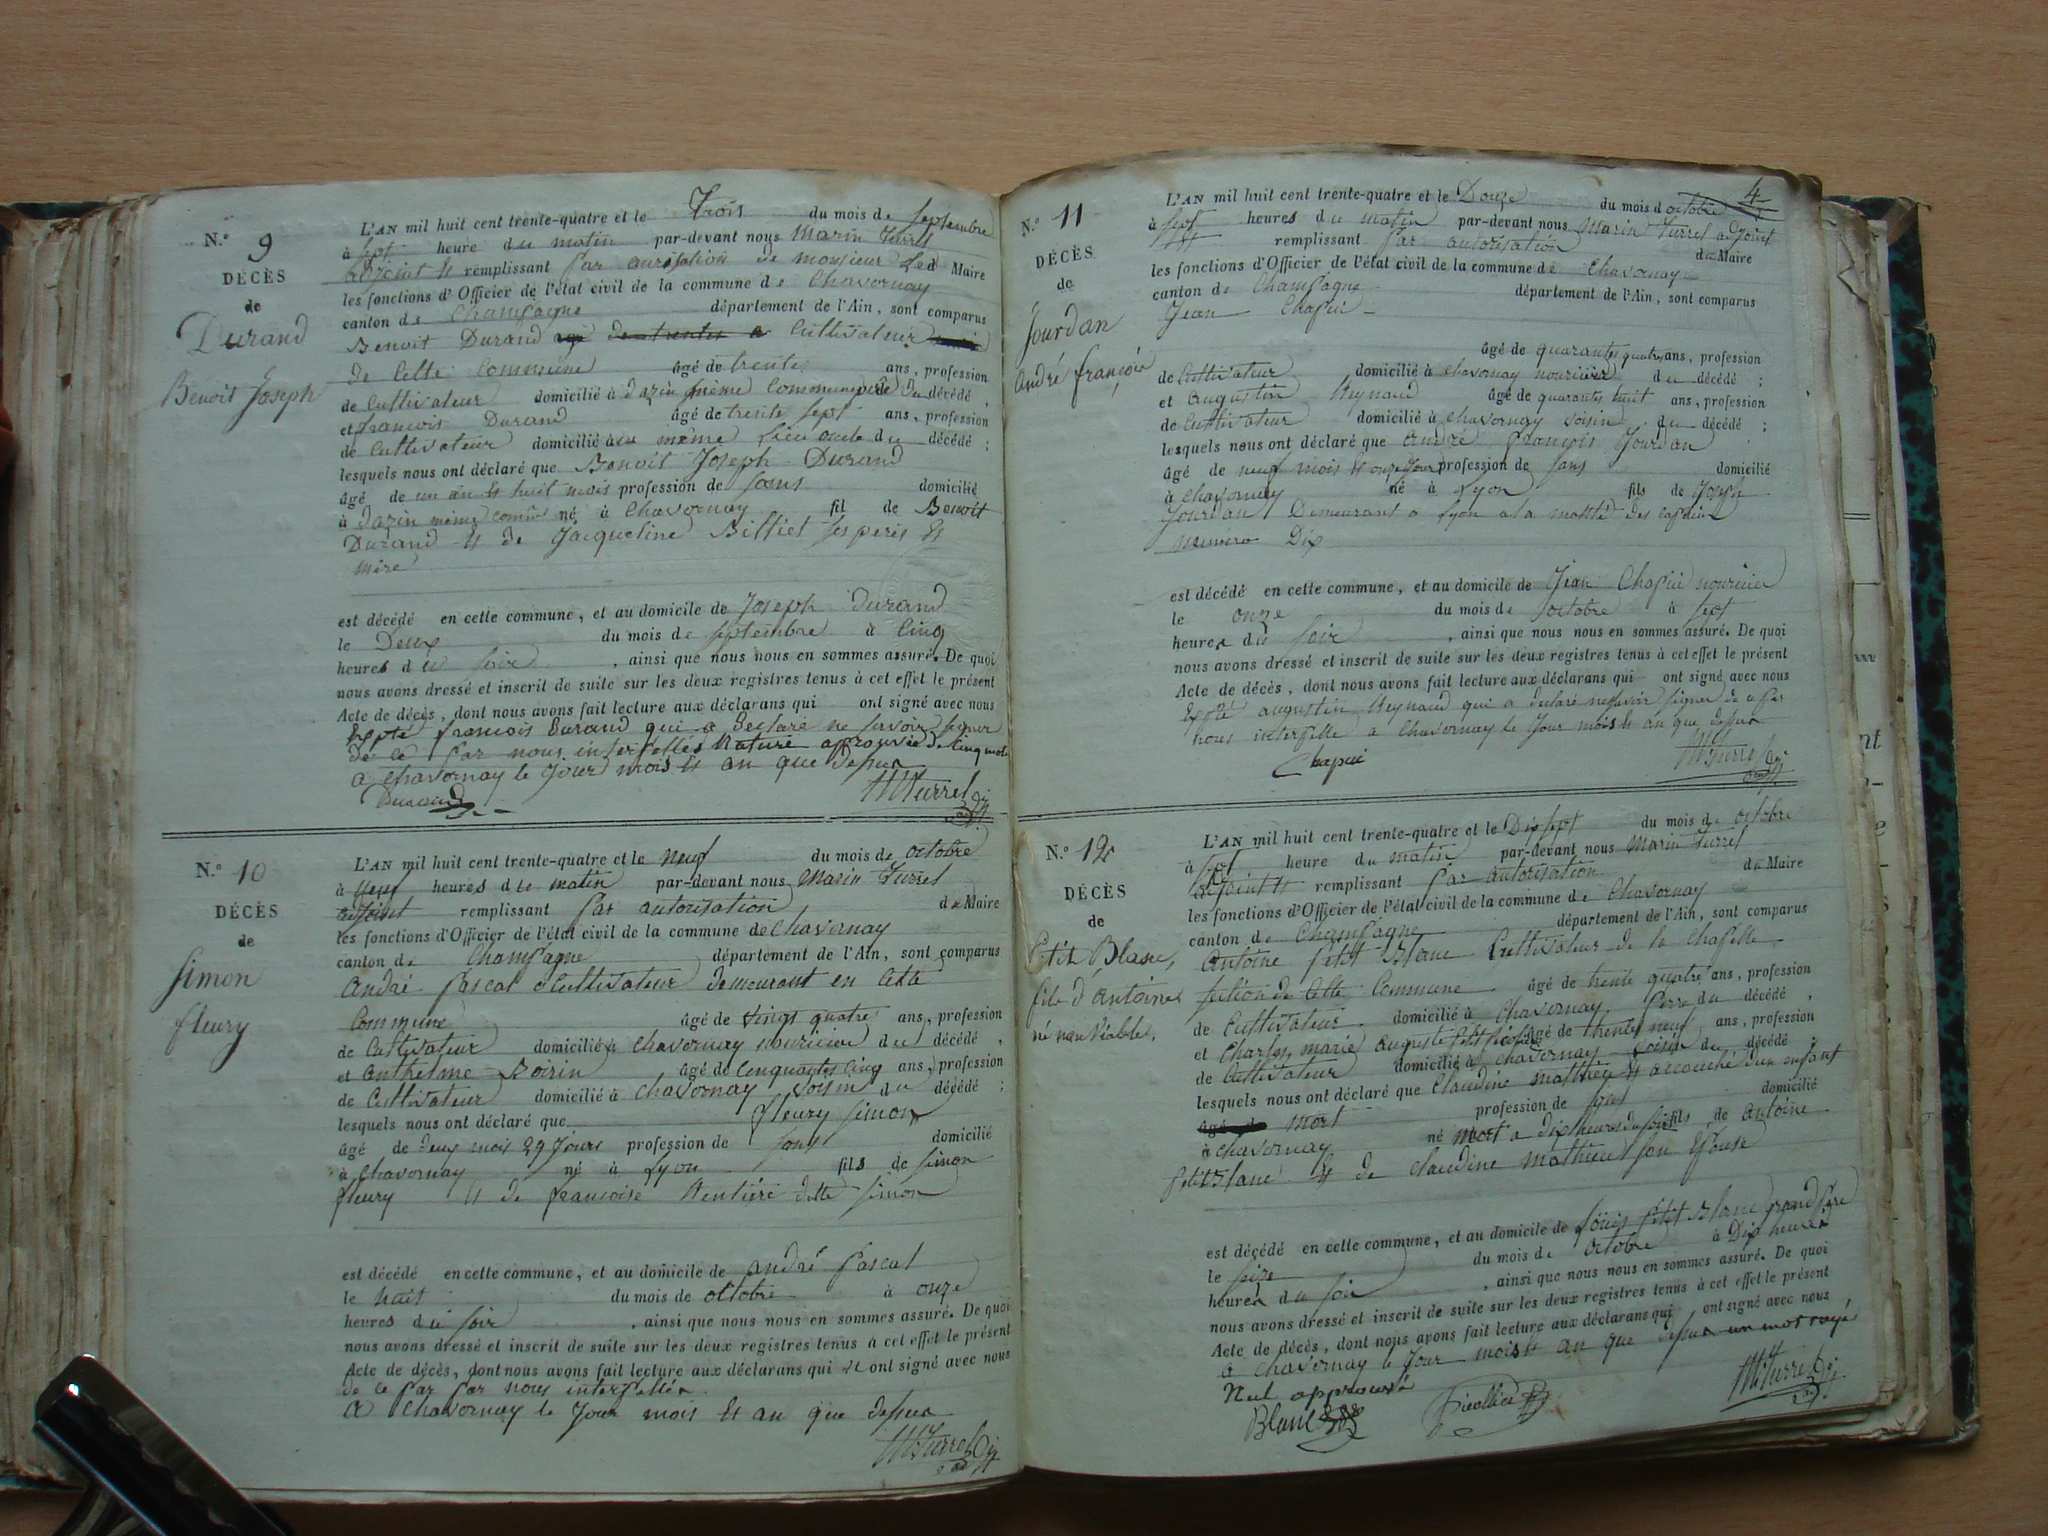 N.º 9
DÉCÈS
de
Durand
Benoit Joseph
L'AN mil huit cent trente-quatre et le Trois du mois de septembre
à sept heure du matin par-devant nous Marin Turrel
adjoint et remplissant par de monsieur Le d Maire
les fonctions d'Officier de l'état civil de la commune de Chavornay
canton de Champagne département de l'Ain, sont comparus
Benoit Durand Cultivateur
de Cette Commune âgé de trente ans, profession
de Cultivateur domicilié à dazin même Commune père du décédé,
et francois Durand âgé de trente sept ans, profession
de Cultivateur domicilié au même Lieu oncle du décédé ;
lesquels nous ont déclaré que Benoit Joseph Durand
âgé de un an et huit mois profession de sans domicilié
à dazin même né à Chavornay fil de Benoit
Durand et de Jacqueline Billiet ses peres et
mere
est décédé en cette commune, et au domicile de Joseph Durand
le Deux du mois de septembre à Cinq
heures du soir, ainsi que nous nous en sommes assuré. De quoi
nous avons dressé et inscrit de suite sur les deux registres tenus à cet effet le présent
Acte de décès, dont nous avons fait lecture aux déclarans qui ont signé avec nous
Expté francois Durand qui a declaré ne savoir signer
de ce par nous interpellés approuvée de Cinq mots
a Chavornay le Jour mois et an que dessus
Durand MTurrel adj
N.º 10
DÉCÈS
de
Simon
fleury
L'AN mil huit cent trente-quatre et le neuf du mois de octobre
à Neuf heures du matin par-devant nous Marin Turrel
adjoint remplissant par autorisation du Maire
les fonctions d'Officier de l'état civil de la commune de Chavornay
canton de Champagne département de l'Ain, sont comparus
André Pascal Cultivateur demeurant en Cette
Commune âgé de vingt quatre ans, profession
de Cultivateur domicilié à Chavornay nouricier du décédé,
et Anthelme Borin âgé de Cinquante Cinq ans, profession
de Cultivateur domicilié à Chavornay voisin du décédé ;
lesquels nous ont déclaré que fleury Simon
âgé de deux mois 29 Jours profession de sans domicilié
à Chavornay né à Lyon fils de Simon
fleury et de francoise ditte Simon
est décédé en cette commune, et au domicile de André Pascal
le huit du mois de octobre à onze
heures du soir, ainsi que nous nous en sommes assuré. De quoi
nous avons dressé et inscrit de suite sur les deux registres tenus à cet effet le présent
Acte de décès, dont nous avons fait lecture aux déclarans qui ont signé avec nous
de ce par par nous interpellés
A Chavornay le Jour mois et an que dessus
MTurrel adj
4
N.º 11
DÉCÈS
de
Jourdan
André françois
L'AN mil huit cent trente-quatre et le Douze du mois d octobre
à sept heures du matin par-devant nous Marin Turrel adjoint
et remplissant par autorisation du Maire
les fonctions d'Officier de l'état civil de la commune de Chavornay
canton de Champagne département de l'Ain, sont comparus
Jean Chapui
âgé de quarante quatre ans, profession
de Cultivateur domicilié à Chavornay nouricier du décédé ;
et Augustin Reynaud âgé de quarante huit ans, profession
de Cultivateur domicilié à Chavornay voisin du décédé ;
lesquels nous ont déclaré que André françois Jourdan
âgé de neuf mois et onze Jour profession de sans domicilié
à Chavornay né à Lyon fils de Joseph
Jourdan Demeurant a Lyon a la des
numero Dix
est décédé en cette commune, et au domicile de Jean Chapui nouricier
le onze du mois de octobre à sept
heures du soir, ainsi que nous nous en sommes assuré. De quoi
nous avons dressé et inscrit de suite sur les deux registres tenus à cet effet le présent
Acte de décès, dont nous avons fait lecture aux déclarans qui ont signé avec nous
Expté augustin Reynaud qui a declaré ne savoir signer de ce par
nous interpelle a Chavornay le Jour mois et an que dessus
Chapui MTurrel adj
N.º 12
DÉCÈS
de
Petit Blanc,
fils d'Antoine
né non viable.
L'AN mil huit cent trente-quatre et le Dix sept du mois de octobre
à sept heure du matin par-devant nous Marin Turrel
adjoint et remplissant par autorisation du Maire
les fonctions d'Officier de l'état civil de la commune de Chavornay
canton de Champagne département de l'Ain, sont comparus
Antoine petit Blanc Cultivateur de la Chapelle
section de Cette Commune âgé de trente quatre ans, profession
de Cultivateur domicilié à Chavornay Perre du décédé,
et Charles marie Auguste âgé de trente neuf ans, profession
de Cultivateur domicilié à Chavornay voisin du décédé ;
lesquels nous ont déclaré que Claudine matthieu et accouché d'un enfant
mort profession de domicilié
à Chavornay né mort a dix heures du soir fils de Antoine
petit Blanc et de Claudine mathieu son Epouse
est décédé en cette commune, et au domicile de Louis petit Blanc grand père
le seize du mois de octobre à Dix heures
heures du soir, ainsi que nous nous en sommes assuré. De quoi
nous avons dressé et inscrit de suite sur les deux registres tenus à cet effet le présent
Acte de décès, dont nous avons fait lecture aux déclarans qui ont signé avec nous
a Chavornay le Jour mois et an que dessus un mot rayé
Nul approuvé
Blanc MTurrel adj